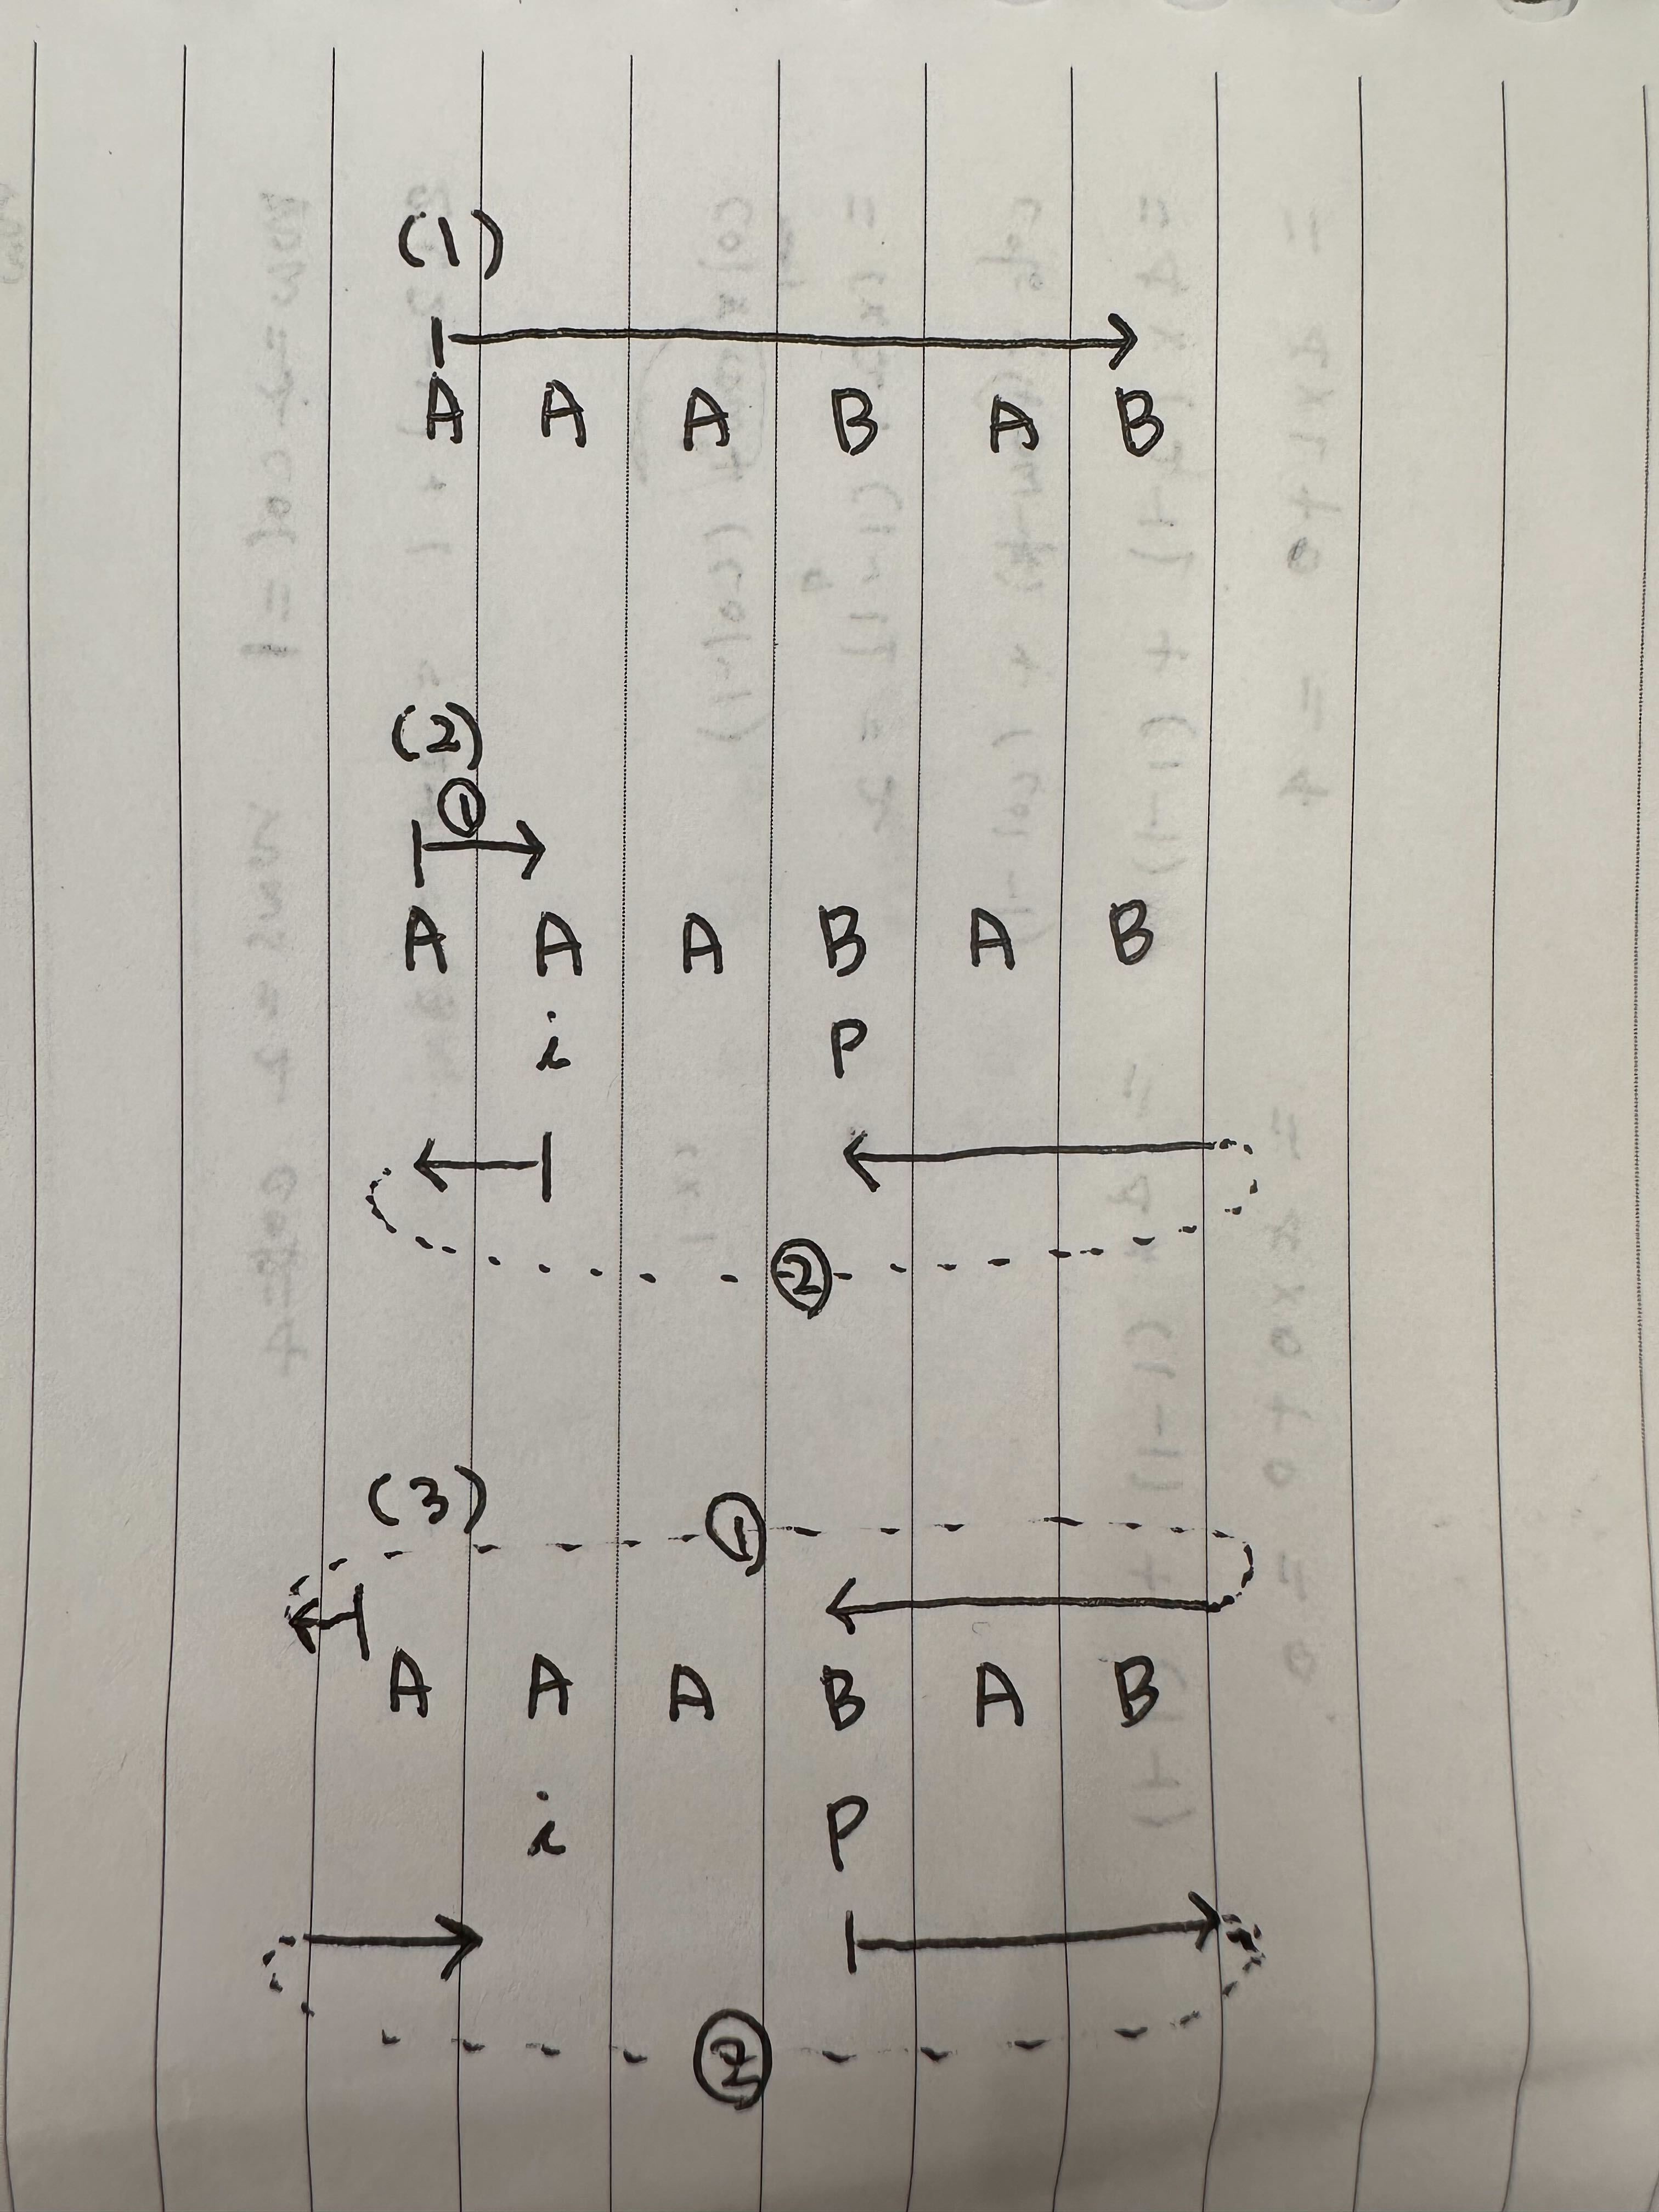 (1)
A A A B A B
(2)
①
A A A B A B
i P
②
(3)
①
A A A B A B
i P
②